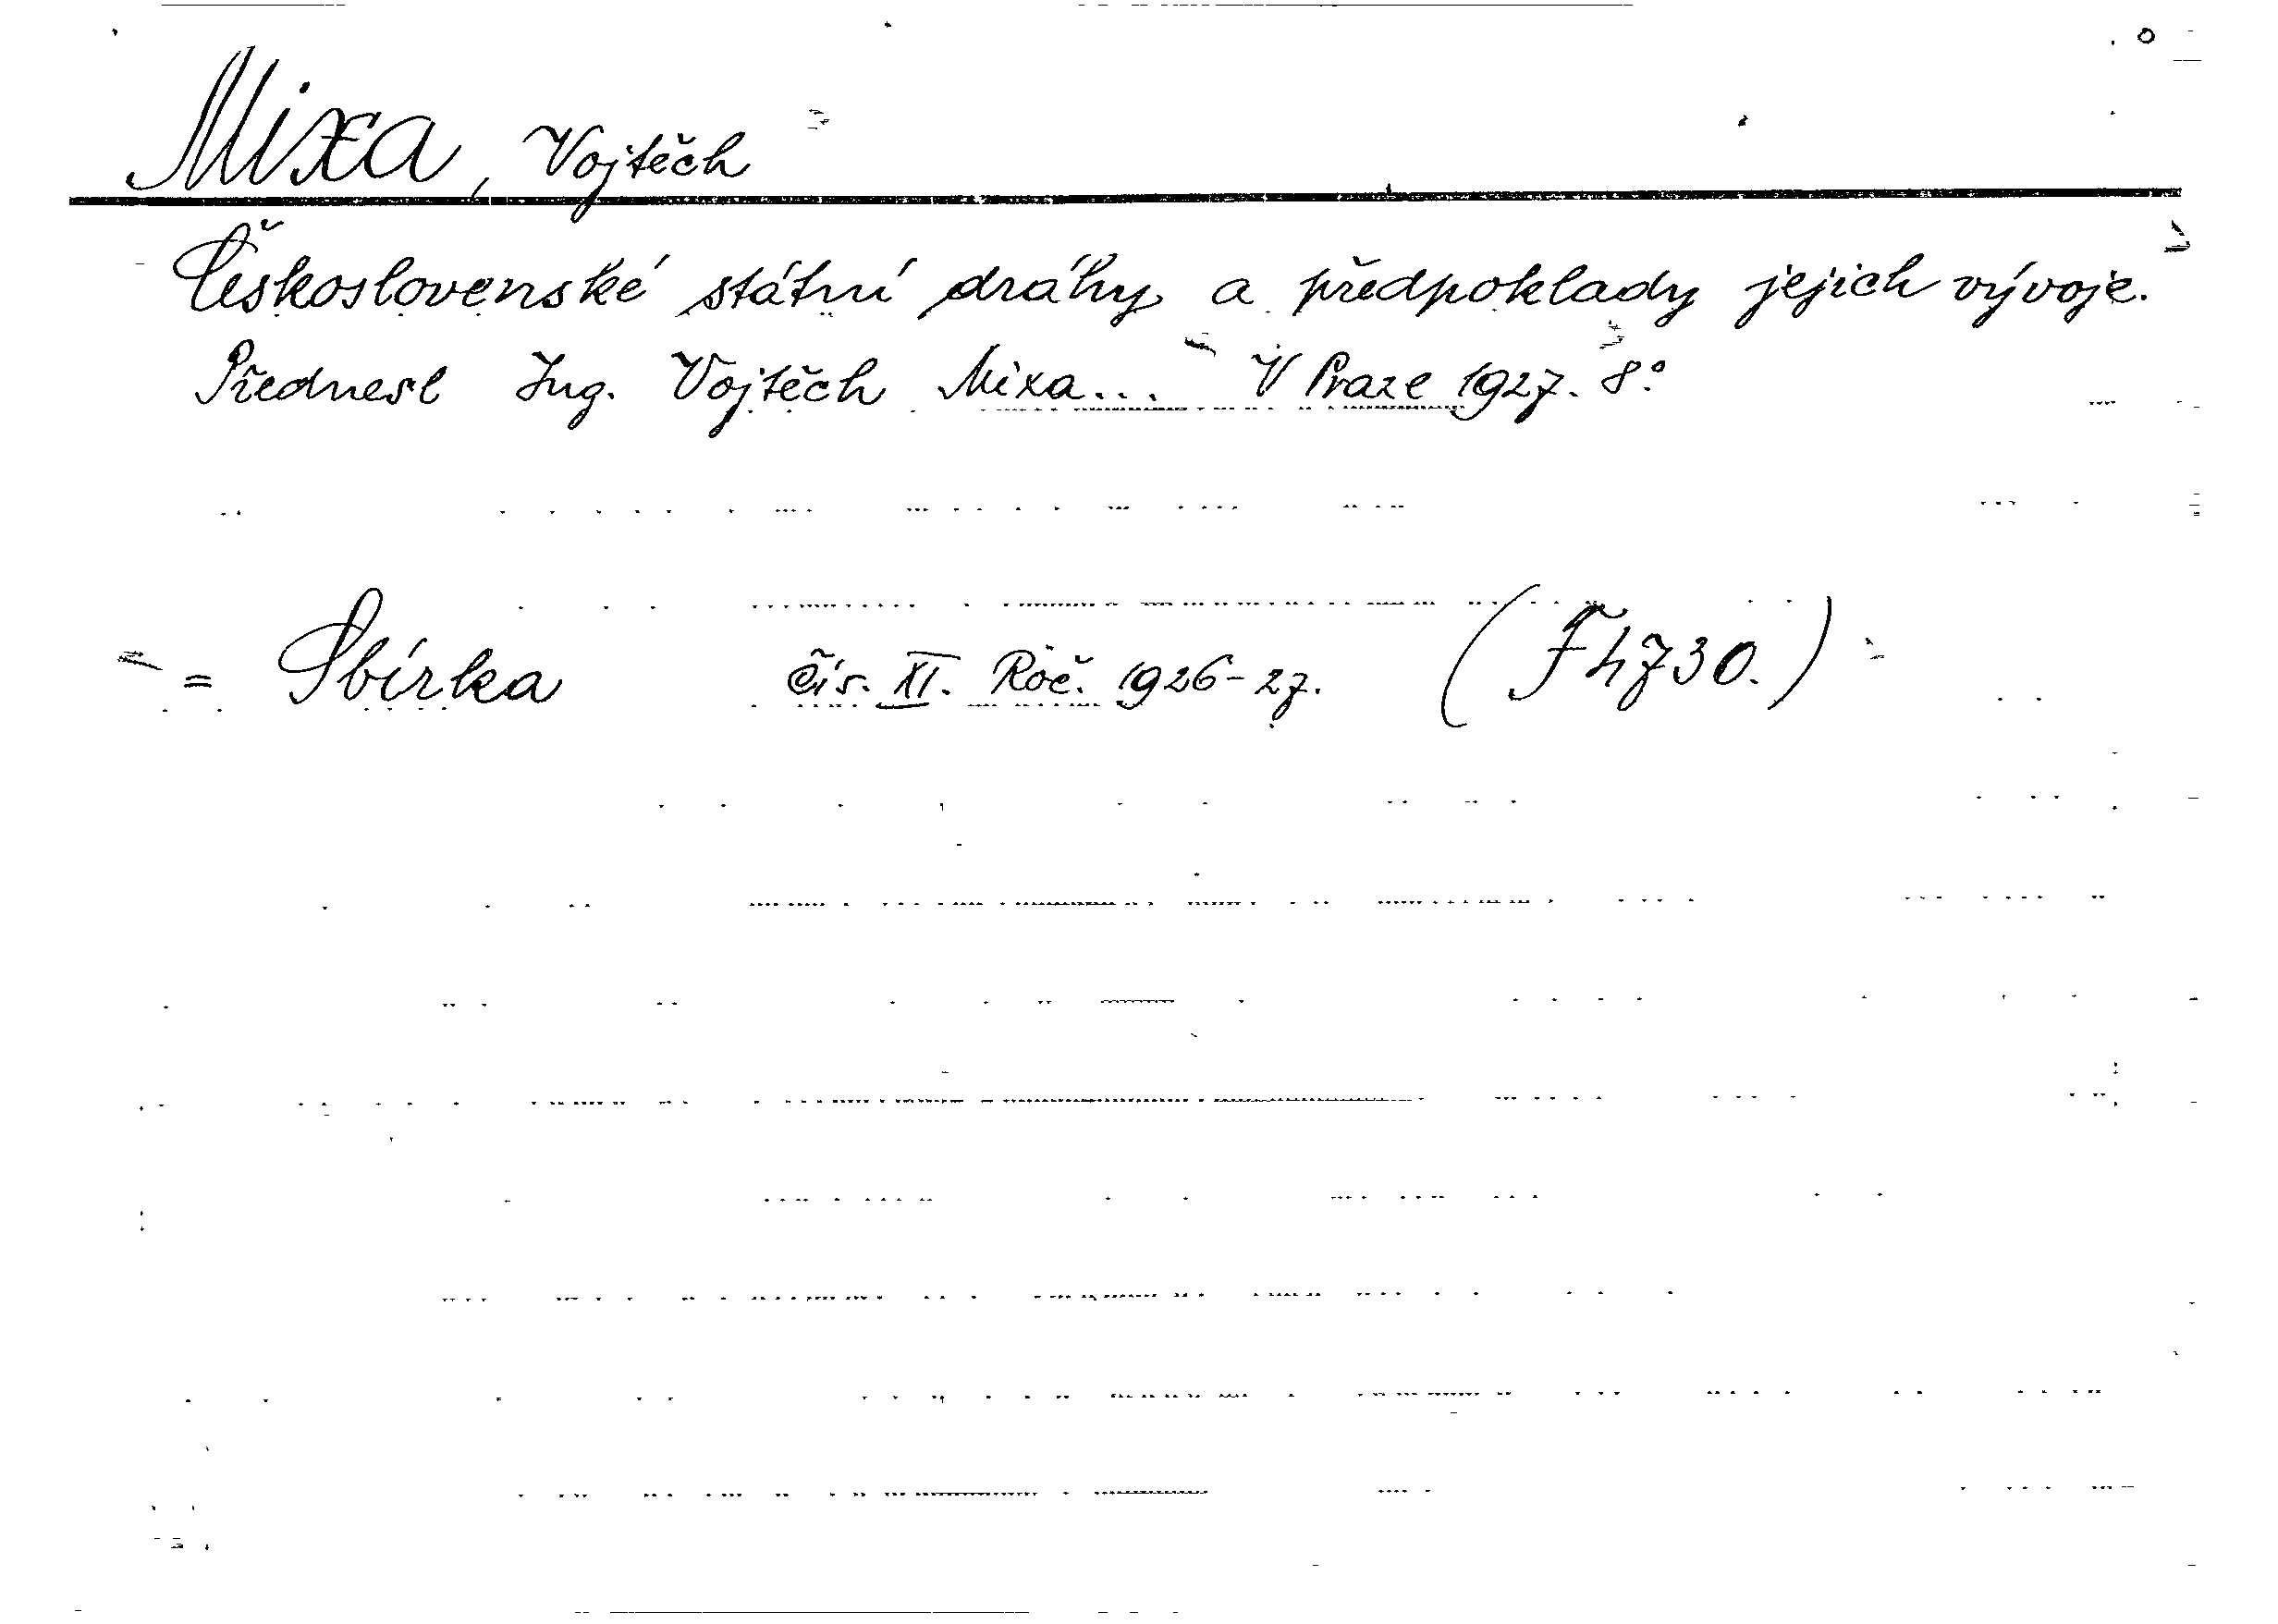 Mixa, Vojtěch
Československé státní dráhy a předpoklady jejich vývoje.
Přednesl Ing. Vojtěch Mixa... V Praze 1927. 8°
= Sbírka čís. XI. Roč. 1926-27. (F h 730.)